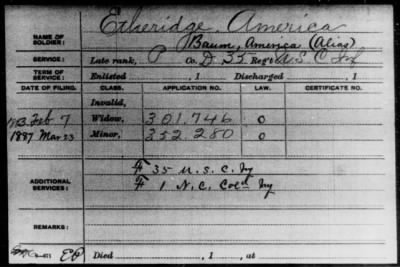 Etheridge, America
NAME OF SOLDIER: Baum, America (Alias)
SERVICE: Late rank, P Co. D 35 Reg't U S C Inf
TERM OF SERVICE: Enlisted , 1 Discharged , 1
DATE OF FILING. CLASS. APPLICATION NO. LAW. CERTIFICATE NO.
Invalid,
Feb 7 Widow, 301.746 0
1887 Mar 23 Minor, 352 280 0
ADDITIONAL SERVICES: 35 U.S.C. Iny
1 N.C. Cold Iny
REMARKS:
Died , 1 , at